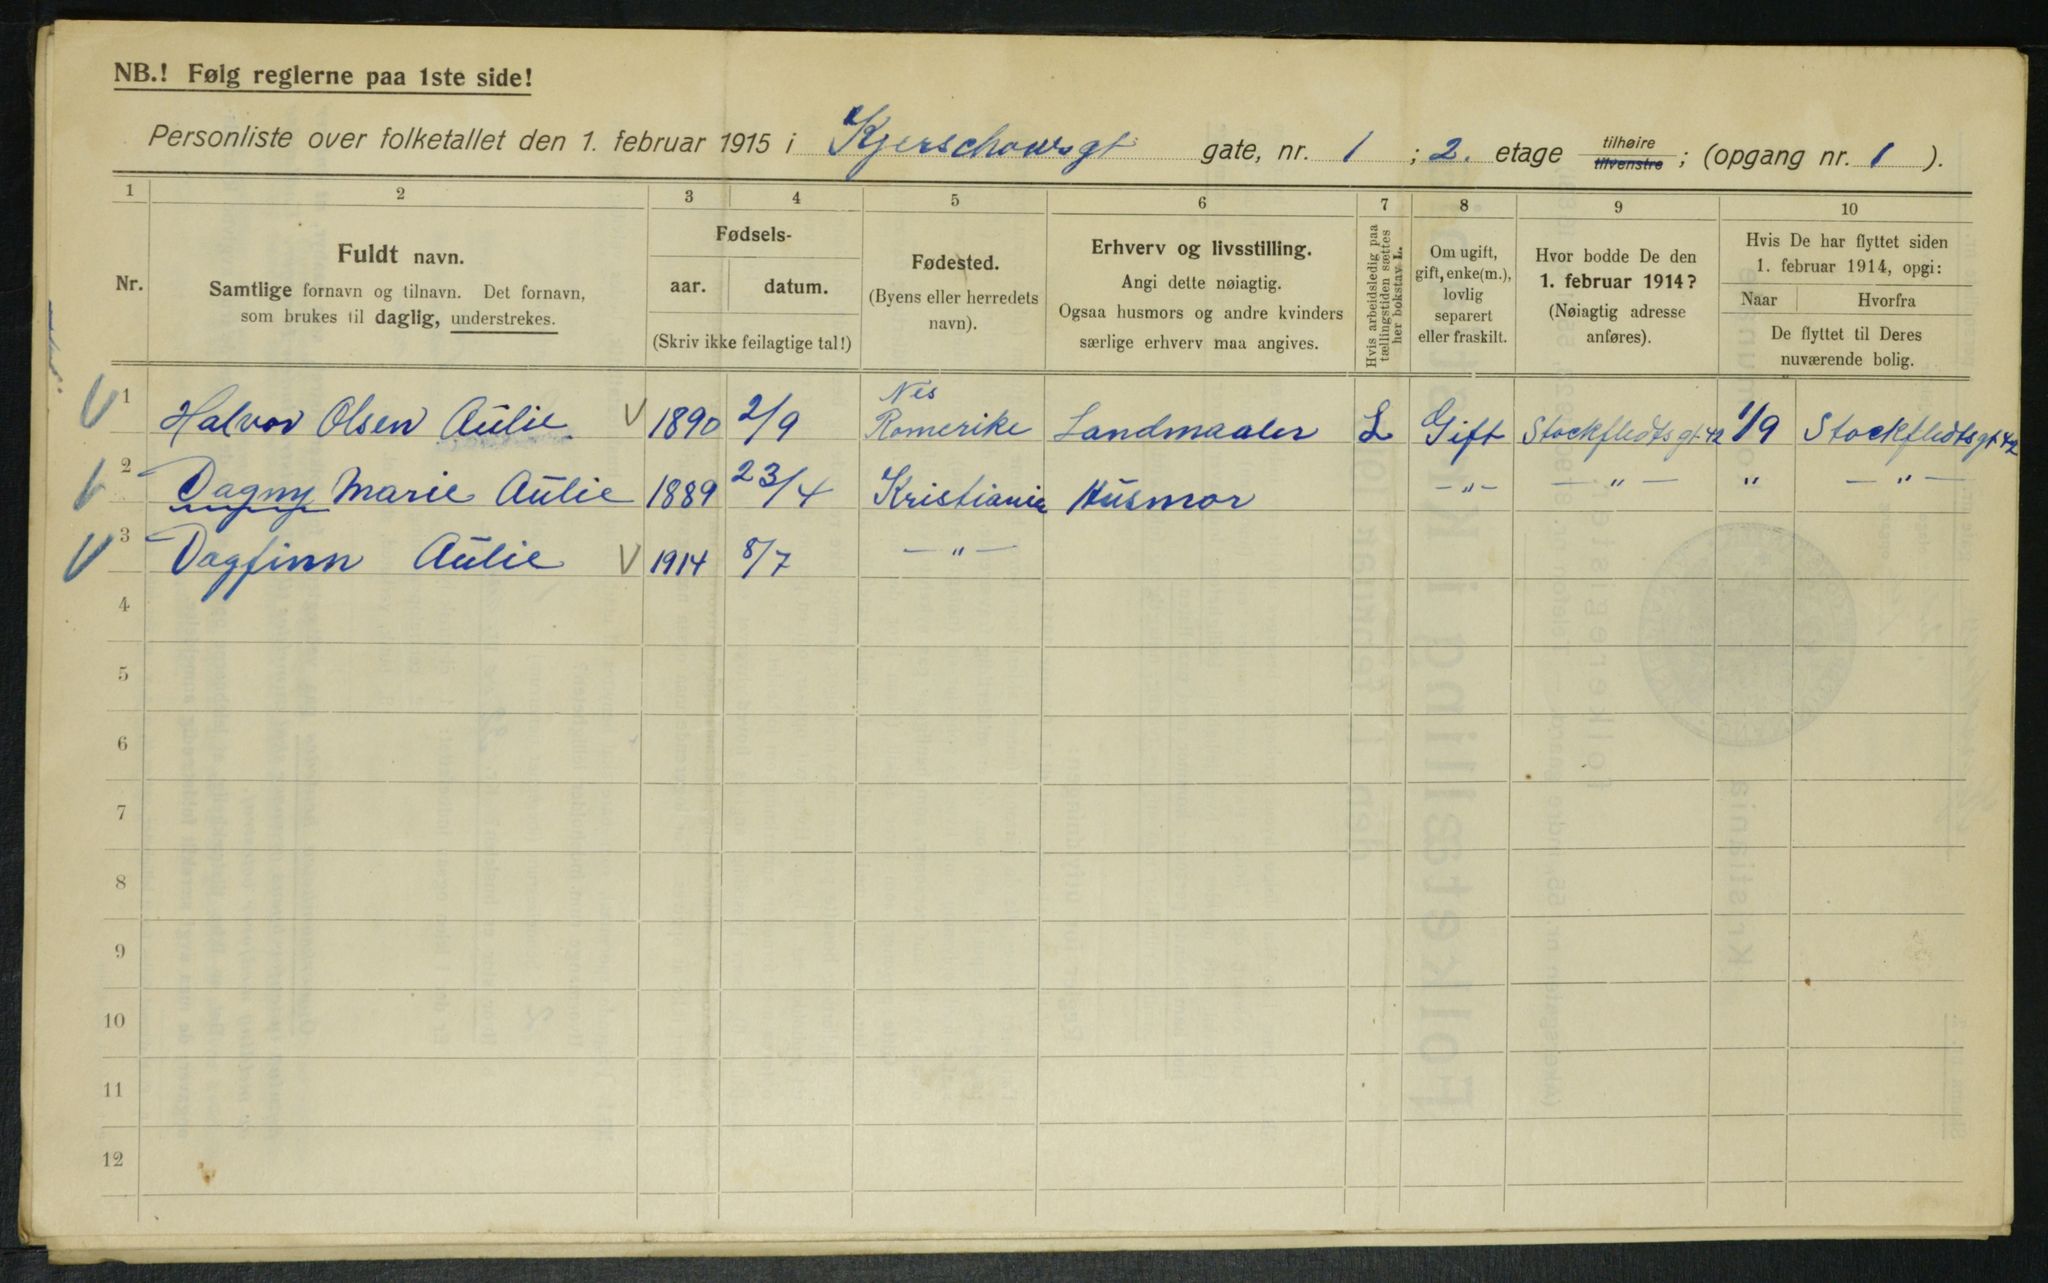 NB.! Følg reglerne paa 1ste side!
Personliste over folketallet den 1. februar 1915 i Kjerschowsgt gate, nr. 1 ; 2. etage tilhøire tilvenstre ; (opgang nr. 1 ).
1 2 3 4 5 6 7 8 9 10
Nr.
Fuldt navn.
Samtlige fornavn og tilnavn. Det fornavn,
som brukes til daglig, understrekes.
Fødsels-
aar. datum.
(Skriv ikke feilagtige tal!)
Fødested.
(Byens eller herredets
navn).
Erhverv og livsstilling.
Angi dette nøiagtig.
Ogsaa husmors og andre kvinders
særlige erhverv maa angives.
Hvis arbeidsledig paa
tællingstiden sættes
her bokstav L.
Om ugift,
gift, enke(m.),
lovlig
separert
eller fraskilt.
Hvor bodde De den
1. februar 1914?
(Nøiagtig adresse
anføres).
Hvis De har flyttet siden
1. februar 1914, opgi:
Naar Hvorfra
De flyttet til Deres
nuværende bolig.
Nes
1 Halvor Olsen Aulie V 1890 2/9 Romerike Landmaaler L Gift Stockfledtsgt 42 1/9 Stockfledtsgt 42
2 Dagny Marie Aulie 1889 23/4 Kristiania Husmor — „ — — „ — „ — „ —
3 Dagfinn Aulie V 1914 8/7 — „ —
4
5
6
7
8
9
10
11
12